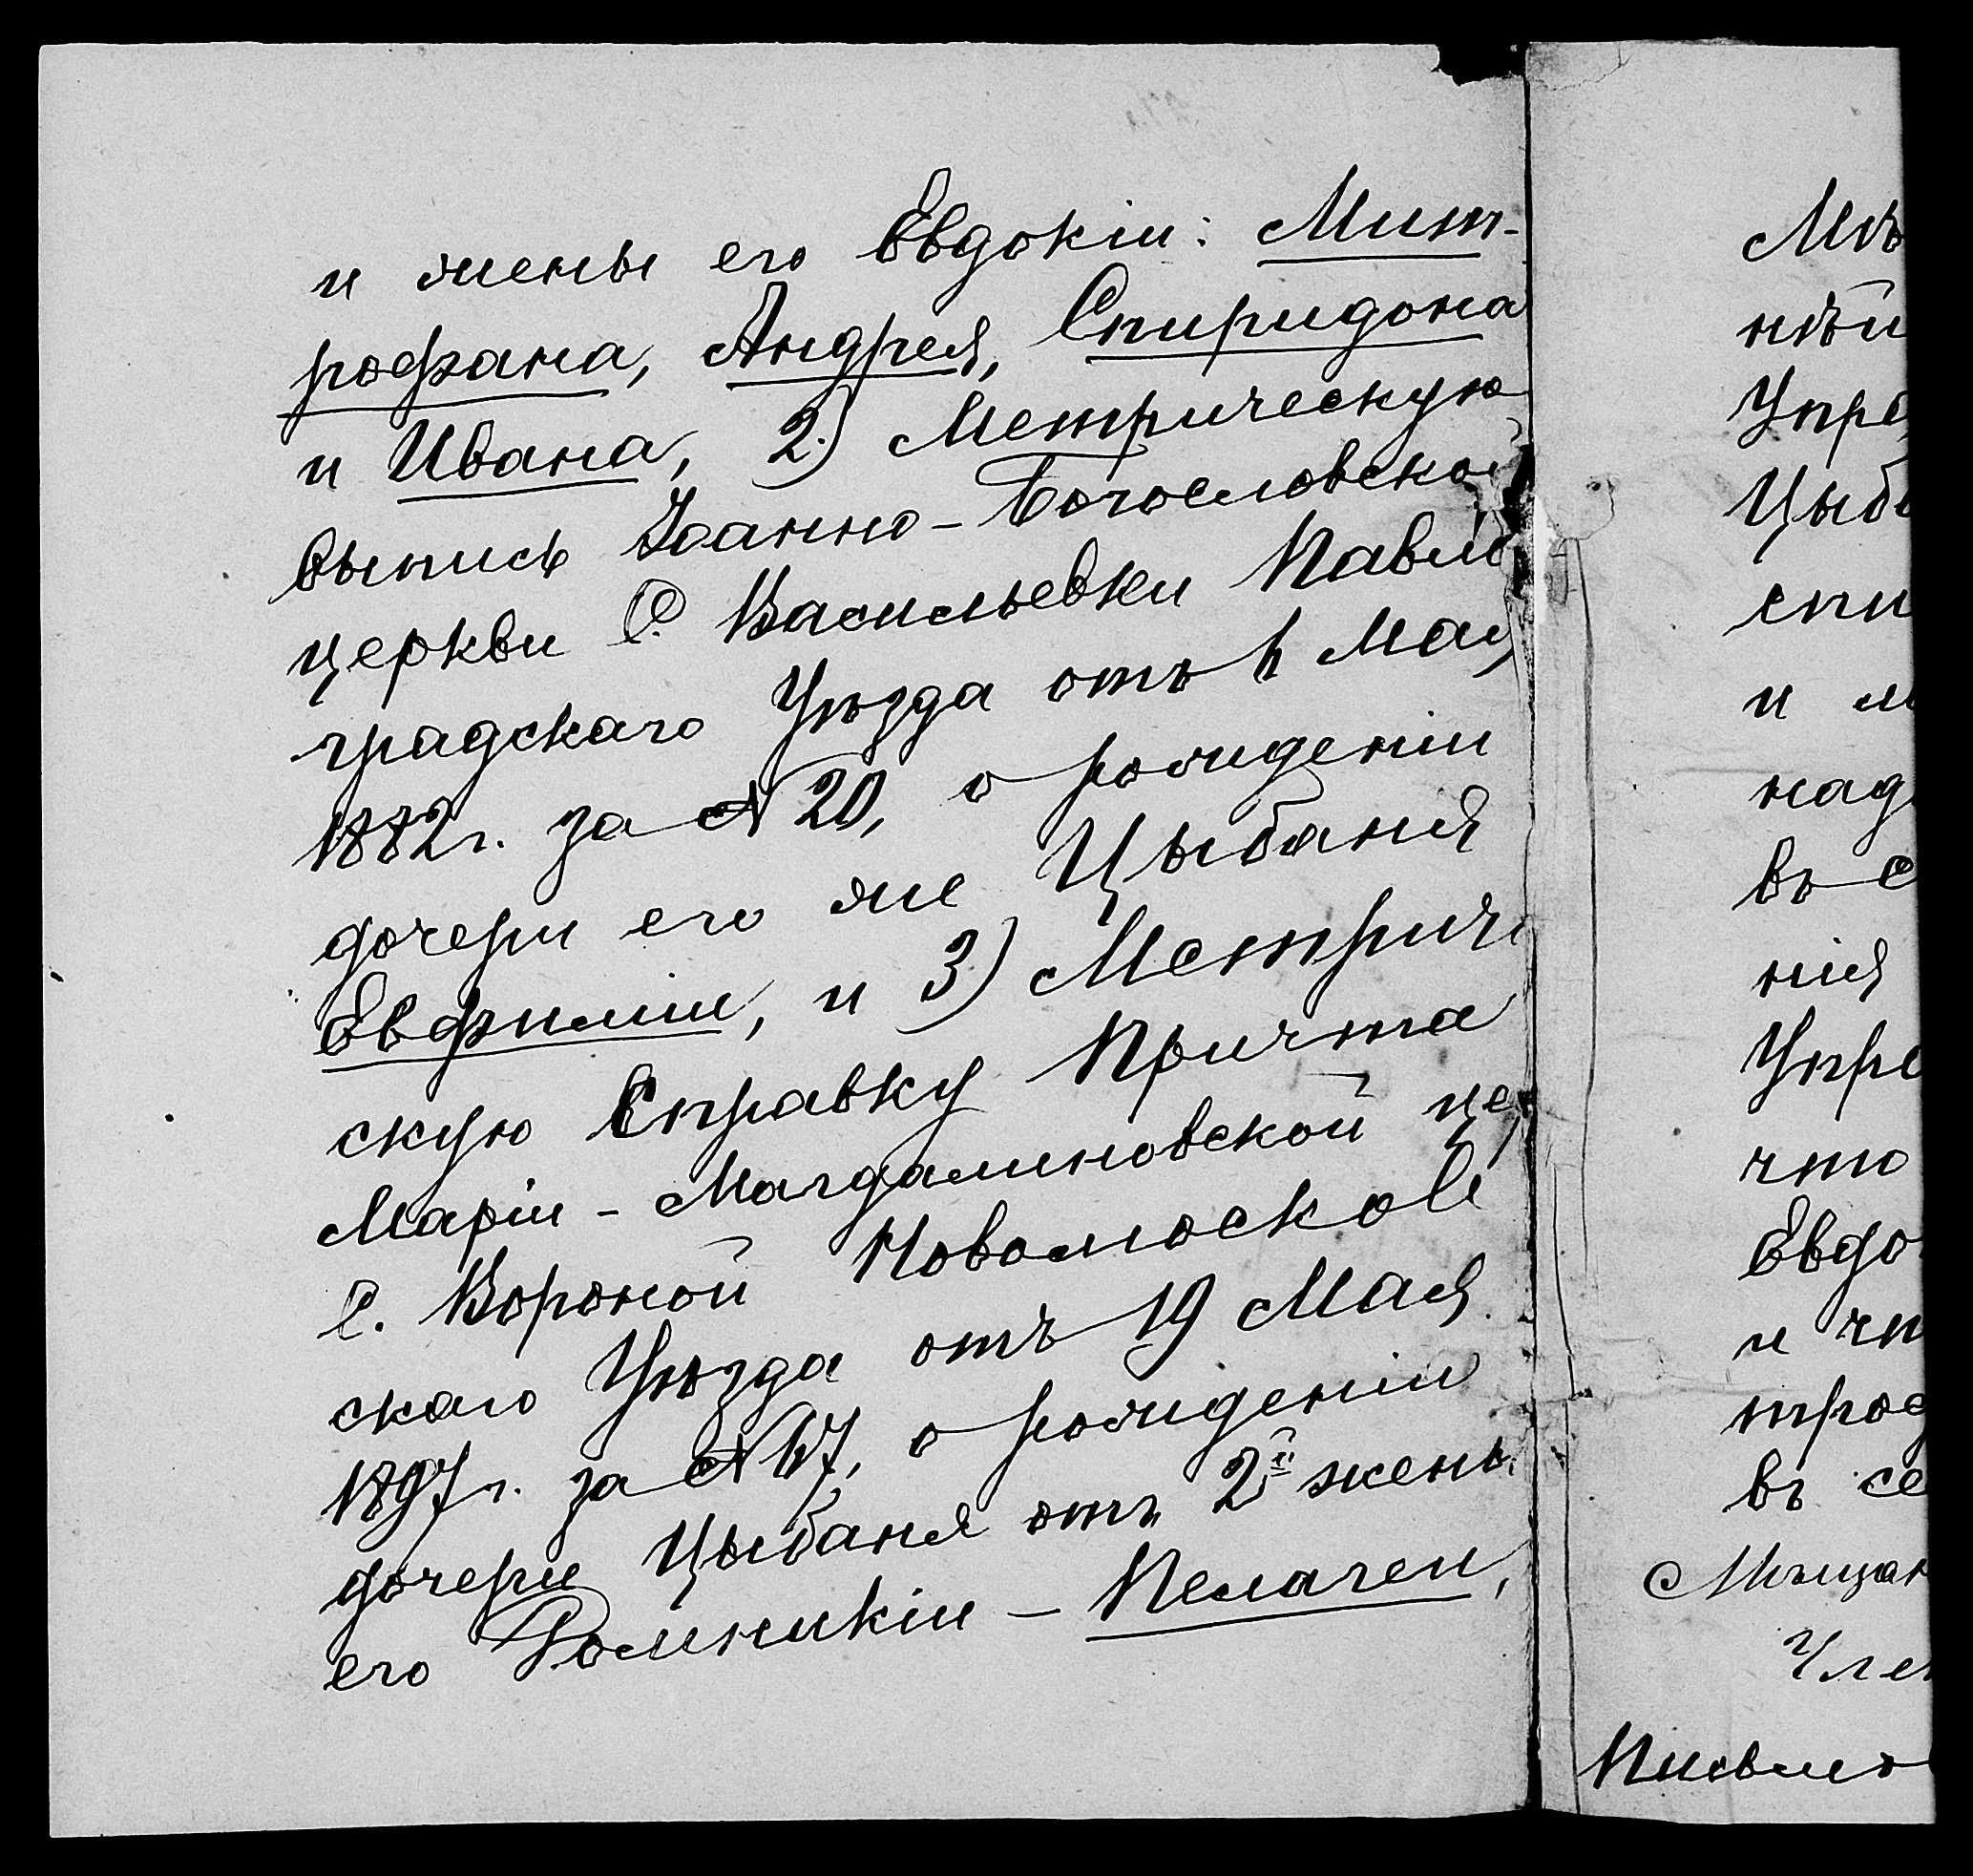 и жены его Евдокіи: Мит-
рофана, Андрея, Спиридона
и Ивана, 2) Метрическую
выпись Іоанно-Богословской
церкви С. Васильевки Павло
градскаго Уѣзда отъ Мая
1882 г. за № 20, о рожденіи
дочери его же Цыбаня
Евфиміи, и 3) Метриче
скую Справку Причта
Маріи-Магдалиновской цер
с. Вороной Новомосков
скаго Уѣзда отъ 19 Мая
1897 г. за № 67, о рожденіи
дочери Цыбаня отъ 2й жены
его Домникіи - Пелагеи,
Мѣ
нѣй
Упра
Цыб
спи
и
над
въ с
нія
Упра
что
Евдо
и чт
троф
въ се
Мѣщан
Член